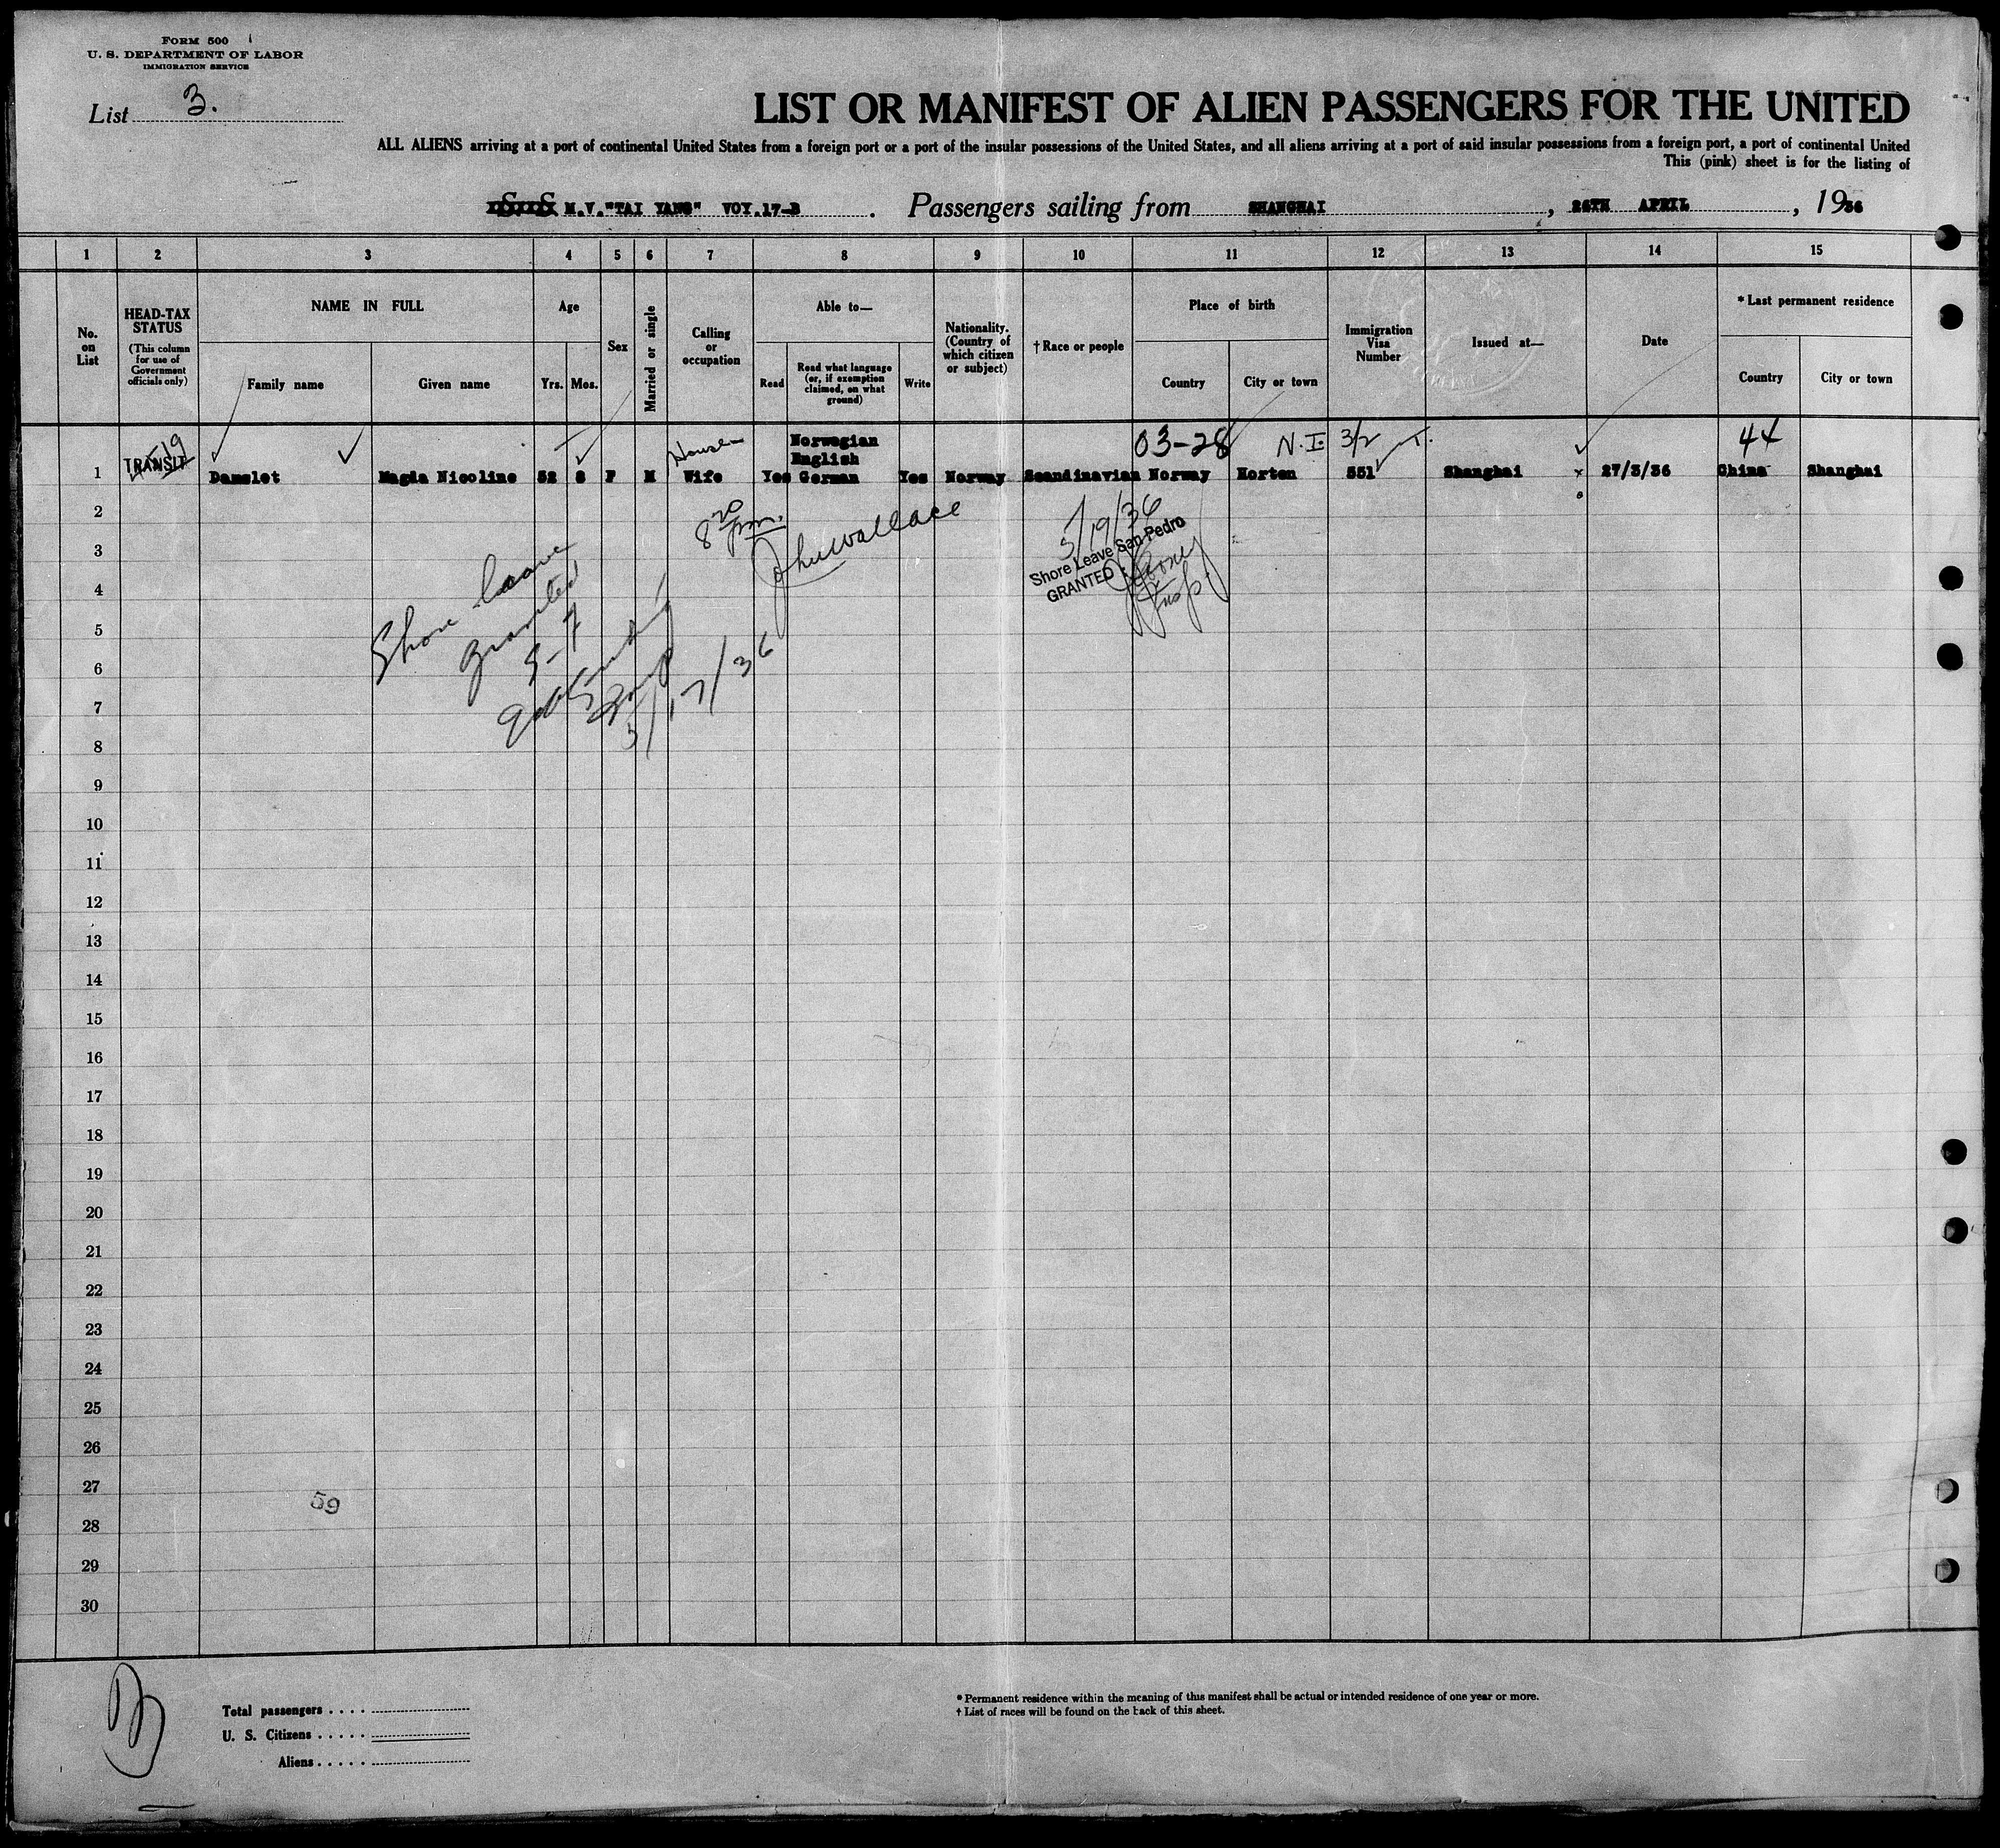 FORM 500
U. S. DEPARTMENT OF LABOR
IMMIGRATION SERVICE
List 3.
LIST OR MANIFEST OF ALIEN PASSENGERS FOR THE UNITED
ALL ALIENS arriving at a port of continental United States from a foreign port or a port of the insular possessions of the United States, and all aliens arriving at a port of said insular possessions from a foreign port, a port of continental United
This (pink) sheet is for the listing of
M.V."TAI YANG" VOY.17-B. Passengers sailing from SHANGHAI, 26TH APRIL, 1936
1 2 3 4 5 6 7 8 9 10 11 12 13 14 15
No. on List
HEAD-TAX STATUS
(This column for use of Government officials only)
NAME IN FULL
Family name
Given name
Age
Yrs. Mos.
Sex
Married or single
Calling or occupation
Able to—
Read
Read what language (or, if exemption claimed, on what ground)
Write
Nationality. (Country of which citizen or subject)
† Race or people
Place of birth
Country
City or town
Immigration Visa Number
Issued at—
Date
* Last permanent residence
Country
City or town
03-28 N.I. 3/2 T. 44
House
Norwegian
English
1 TRANSIT Damslet Magda Nicoline 52 6 F M Wife Yes German Yes Norway Scandinavian Norway Horten 551 Shanghai 27/3/36 China Shanghai
2
8 20 pm. John Wallace
5/19/36
3
Shore Leave San Pedro
GRANTED
Insp.
4
Shore leave
granted
5
5-7
6
7
5/17/36
8
9
10
11
12
13
14
15
16
17
18
19
20
21
22
23
24
25
26
27
59
28
29
30
Total passengers
U. S. Citizens
Aliens
* Permanent residence within the meaning of this manifest shall be actual or intended residence of one year or more.
† List of races will be found on the back of this sheet.